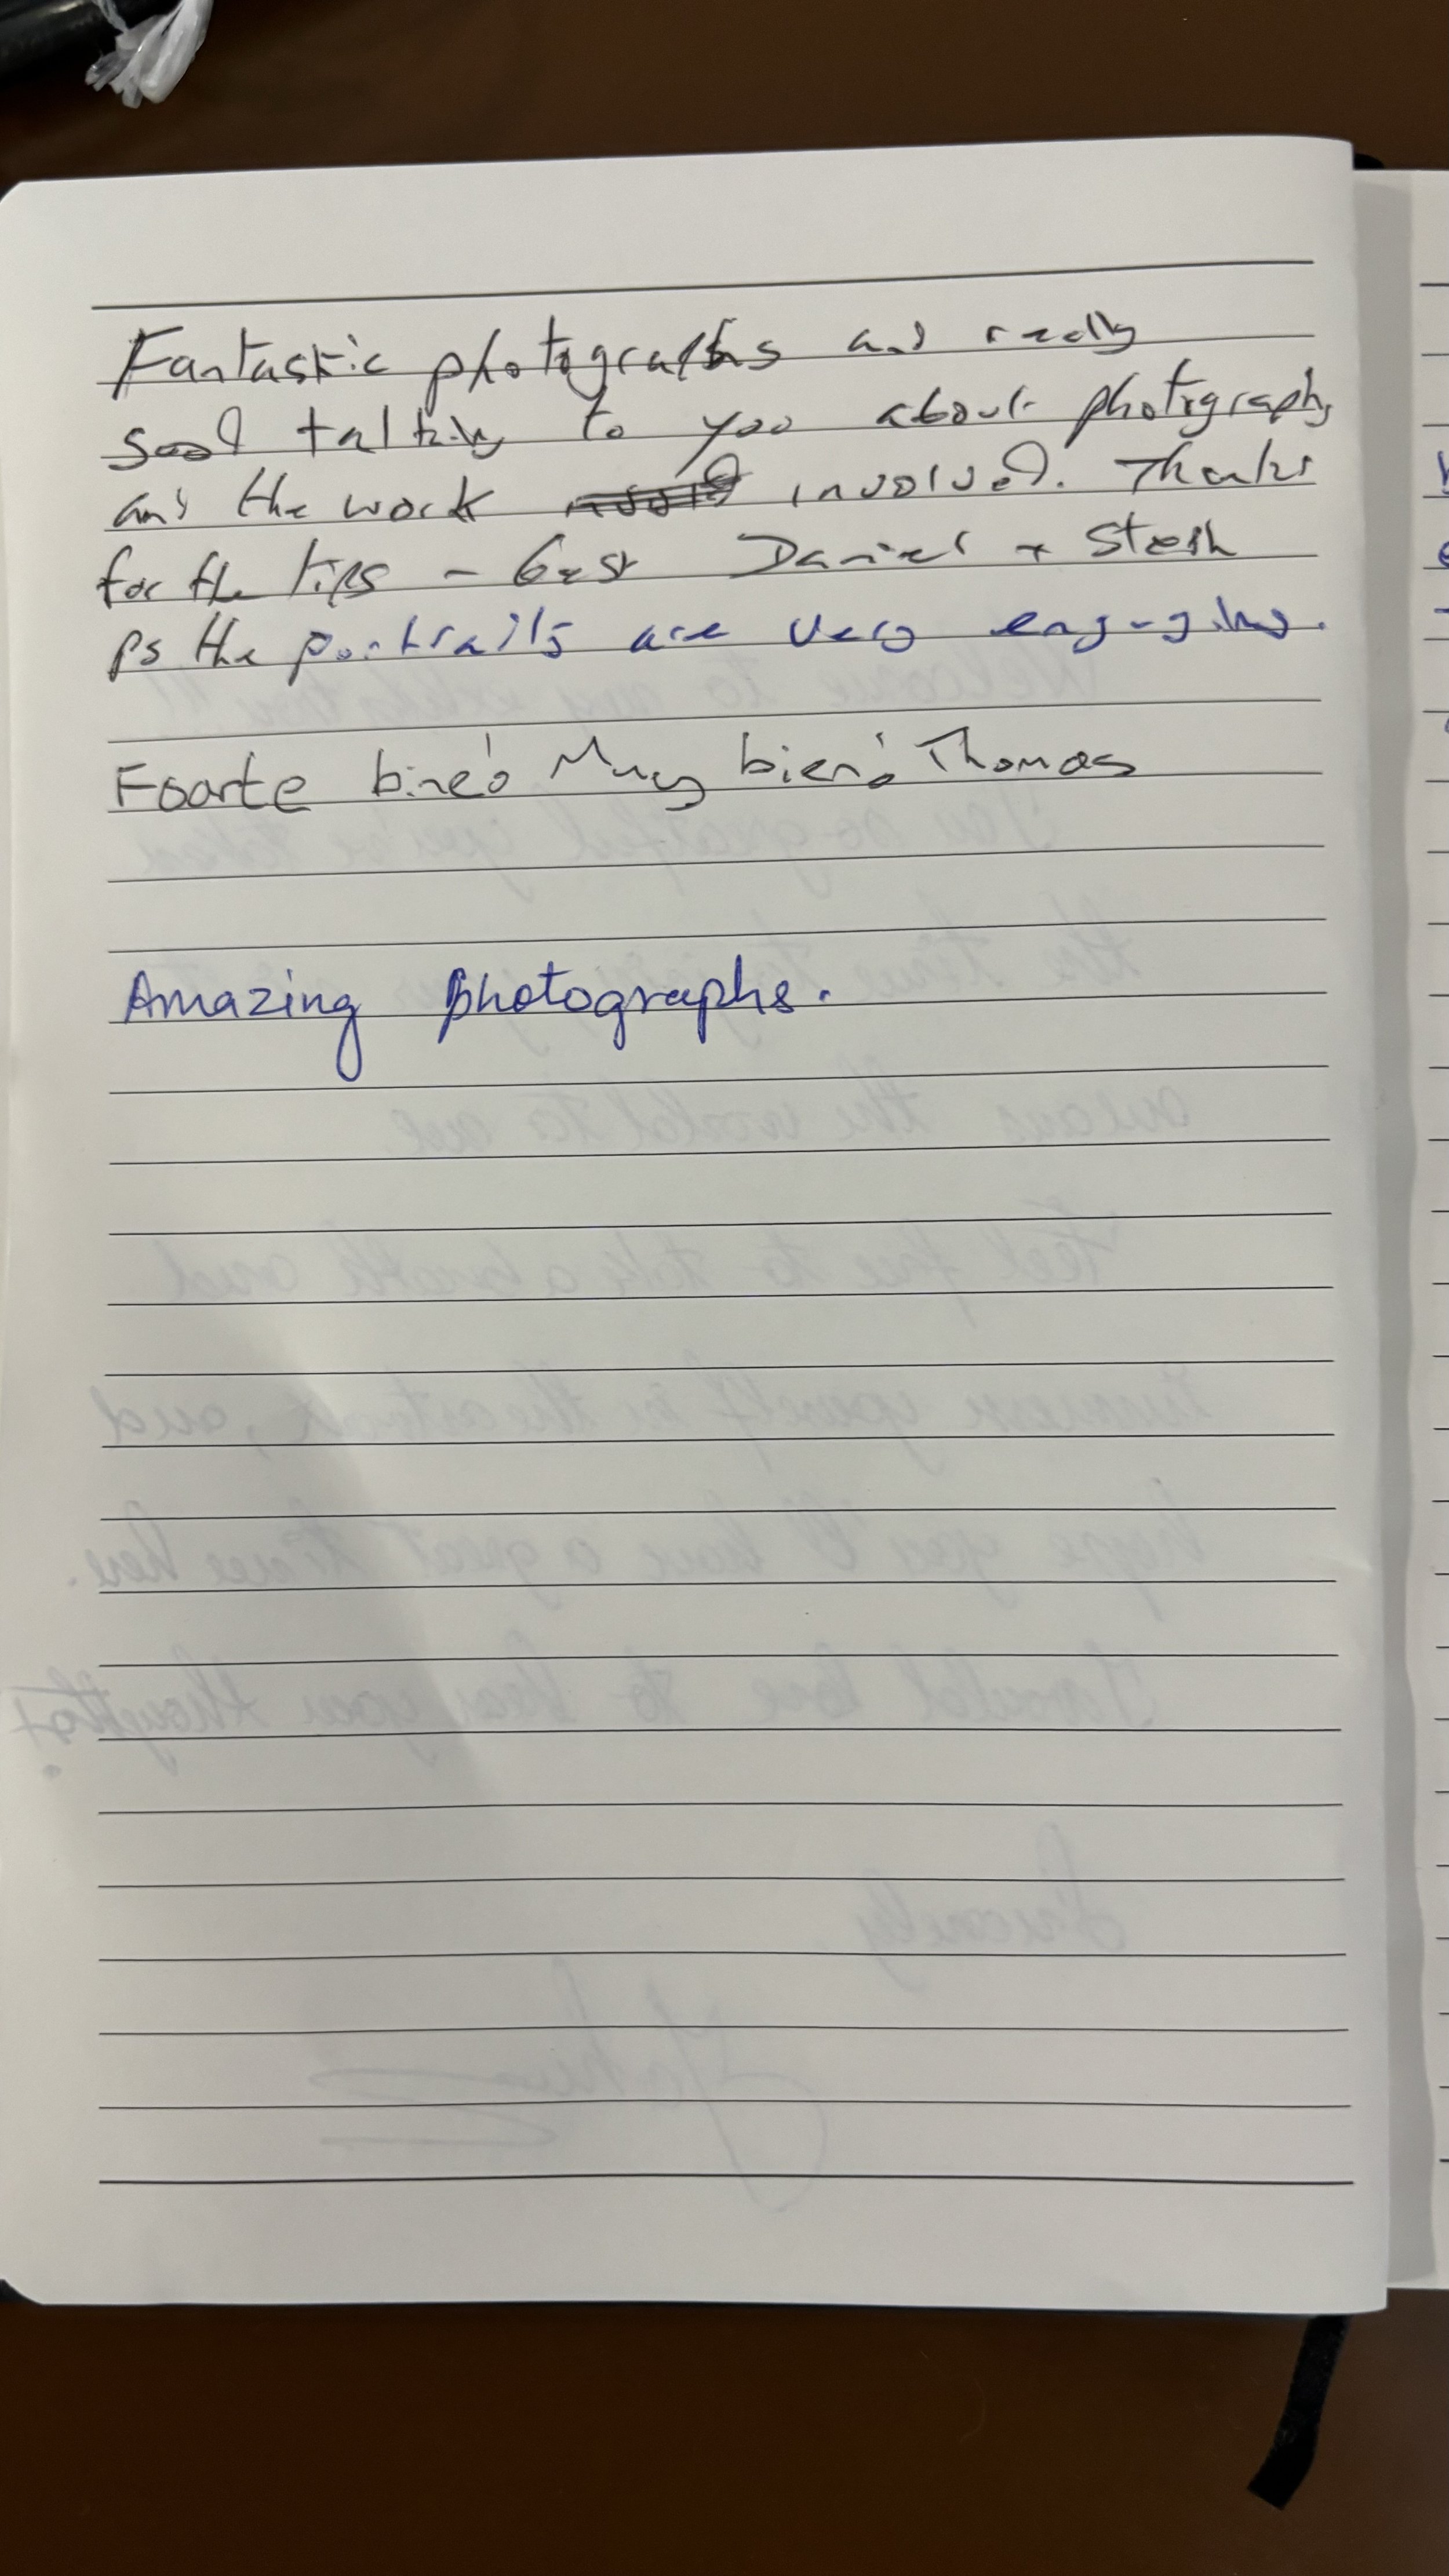 Fantastic photographs and really
good talking to you about photography
and the work involved. Thanks
for the tips - Best Daniel + Steph
ps the portraits are very engaging.
Foarte bine! Muy bien! Thomas
Amazing photographs.